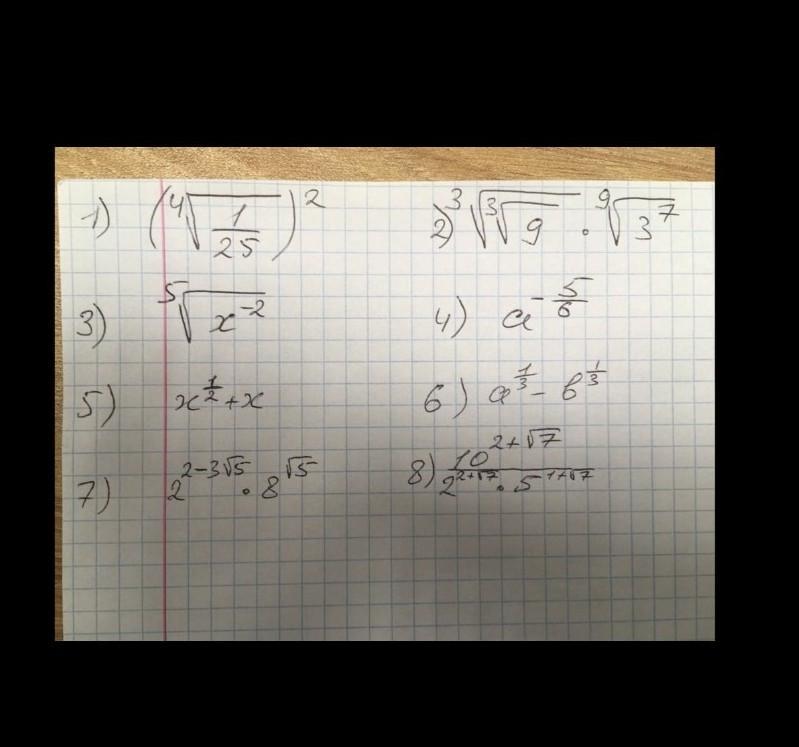 1) (⁴√(1/25))² 2) ³√(³√9) · ⁹√(3⁷)
3) ⁵√(x⁻²) 4) a^(-5/6)
5) x^(1/2) + x 6) a^(1/3) - b^(1/3)
7) 2^(2-3√5) · 8^(√5) 8) 10^(2+√7) / (2^(2+√7) · 5^(1+√7))